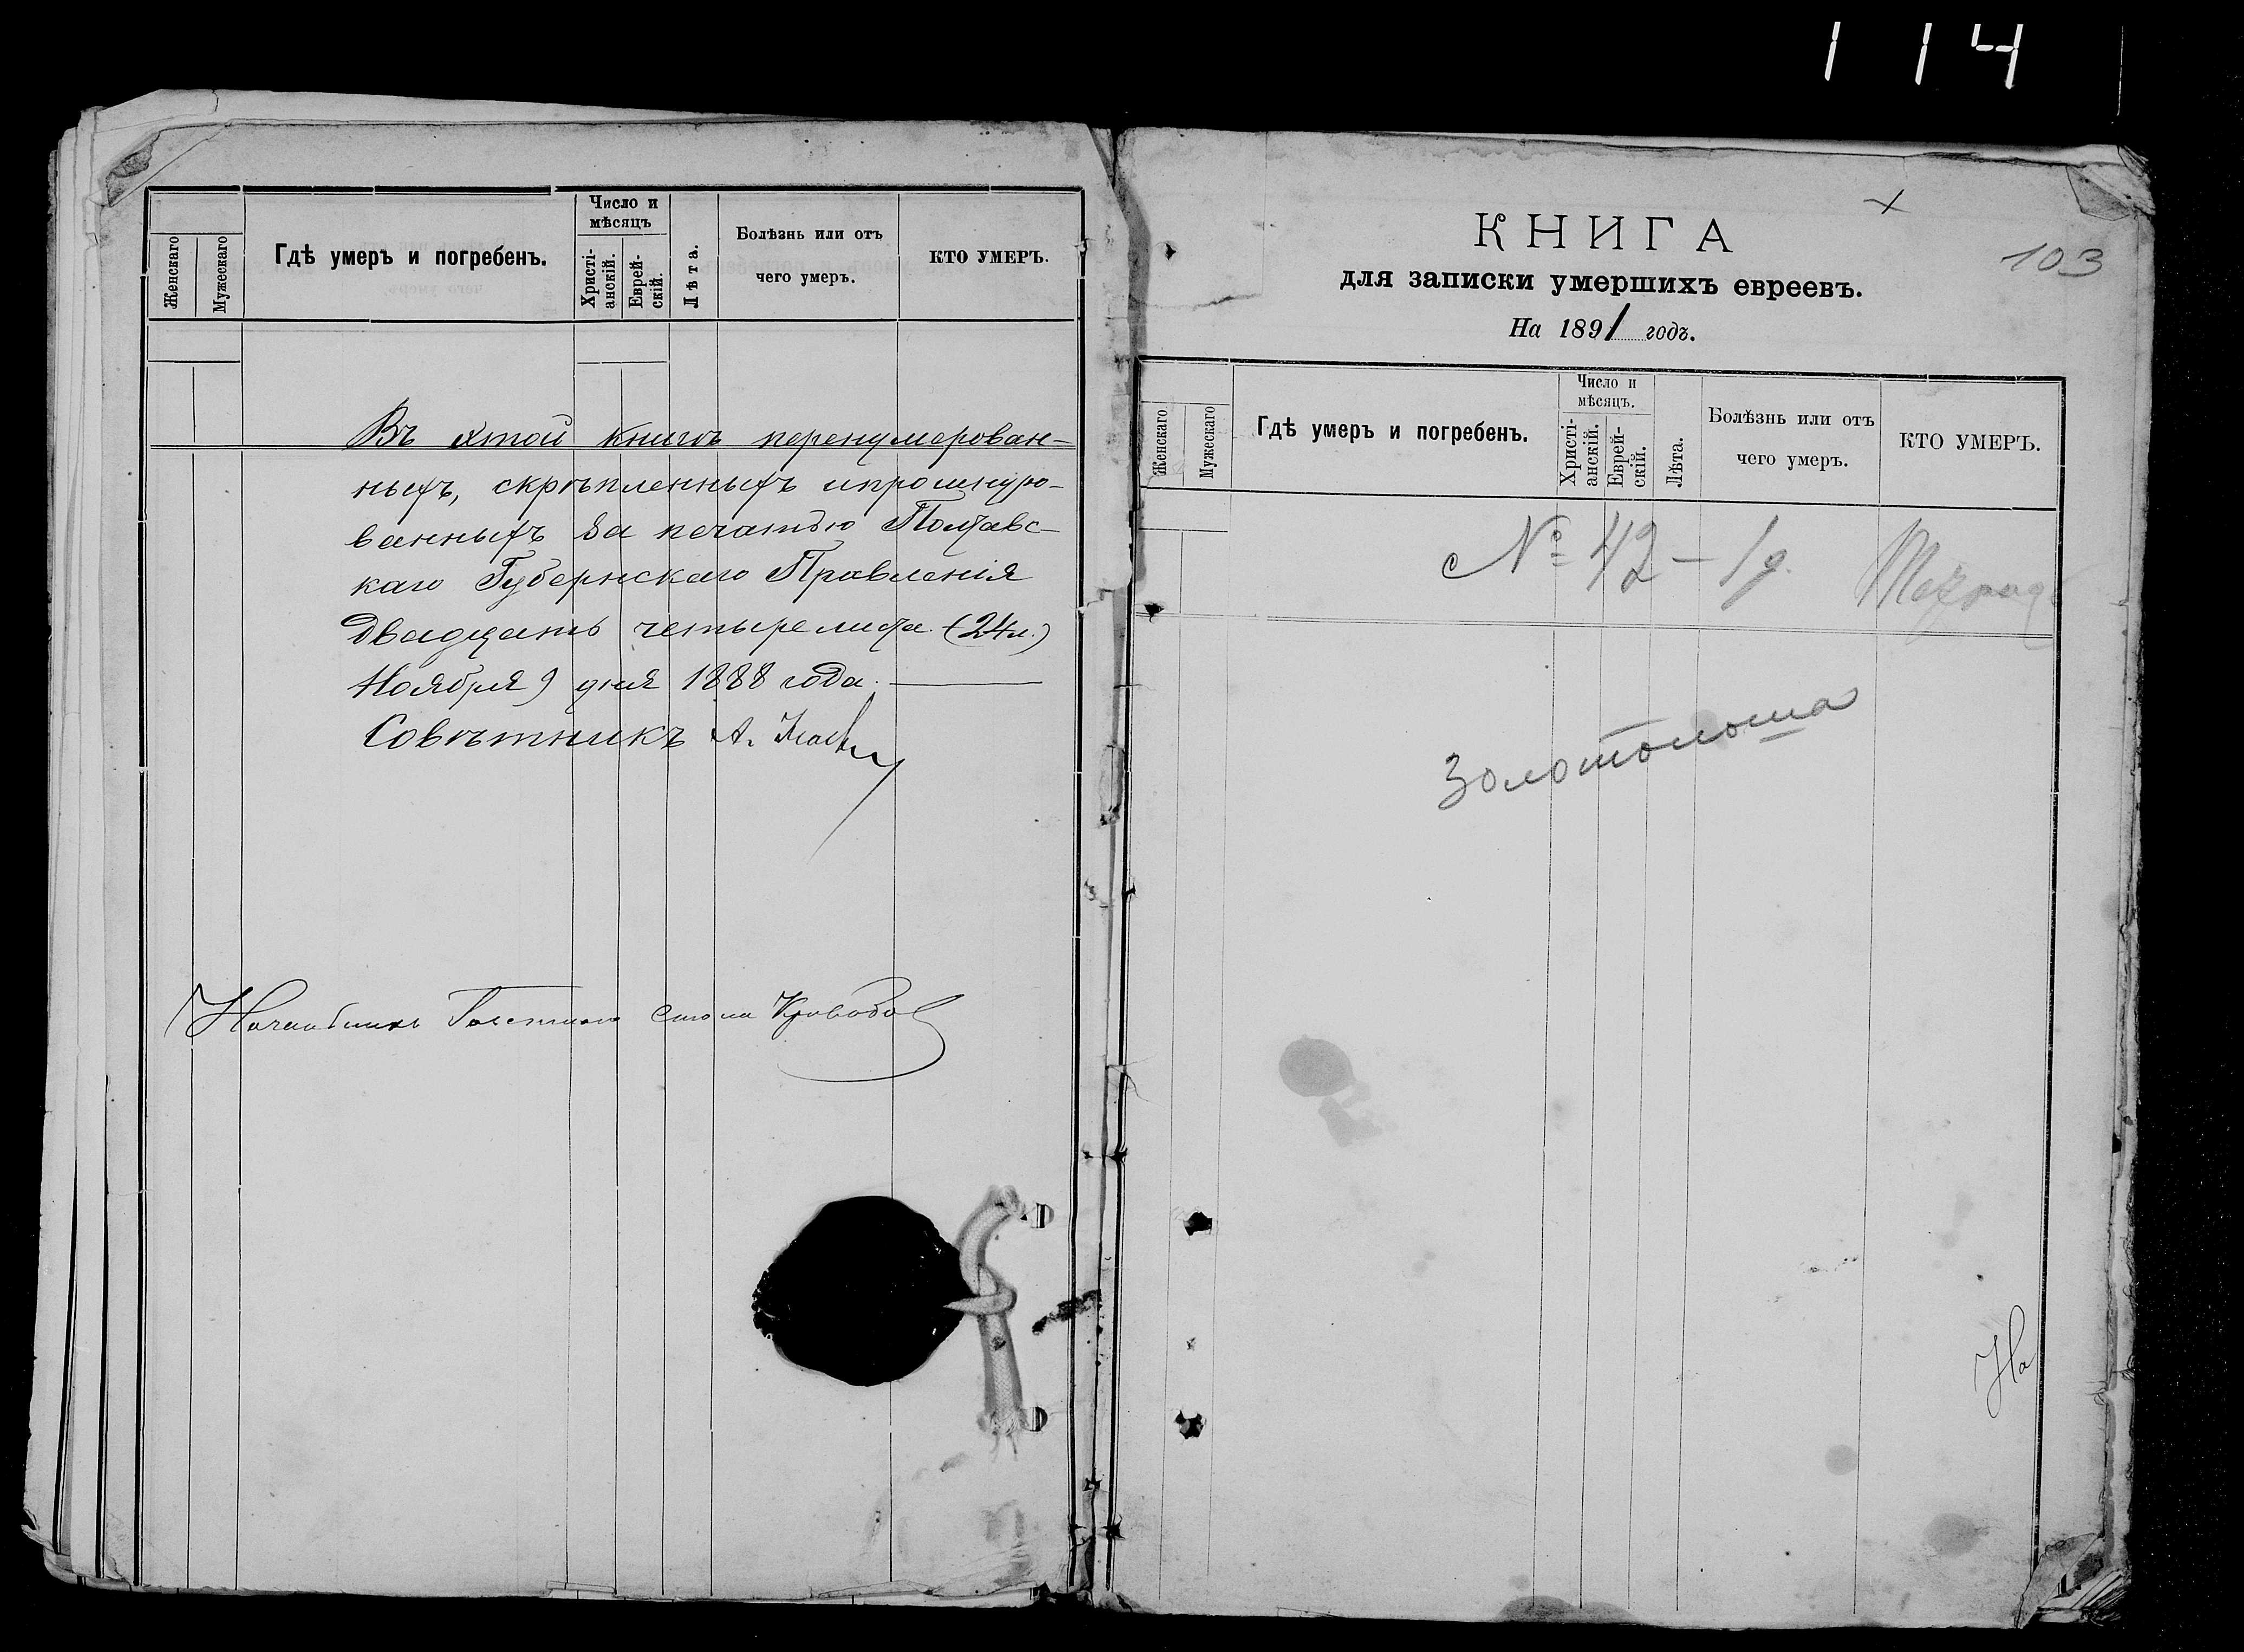 114
Женскаго
Мужескаго
Гдѣ умеръ и погребенъ.
Число и
мѣсяцъ
Христі-
анскій.
Еврей-
скій.
Лѣта.
Болѣзнь или отъ
чего умеръ.
КТО УМЕРЪ.
Въ этой книгѣ перенумерован-
ныхъ, скрѣпленныхъ и прошнуро-
ванныхъ за печатью Полтавс-
каго Губернскаго Правленія
двадцать четыре листа (24 л.)
Ноября 9 дня 1888 года.
Совѣтникъ А.
Начальникъ Газетнаго Стола
КНИГА
103
для записки умершихъ евреевъ.
На 1891 годъ.
Женскаго
Мужескаго
Гдѣ умеръ и погребенъ.
Число и
мѣсяцъ.
Христі-
анскій.
Еврей-
скій.
Лѣта.
Болѣзнь или отъ
чего умеръ.
КТО УМЕРЪ.
№ 42 – 1 д.
Золотоноша
На